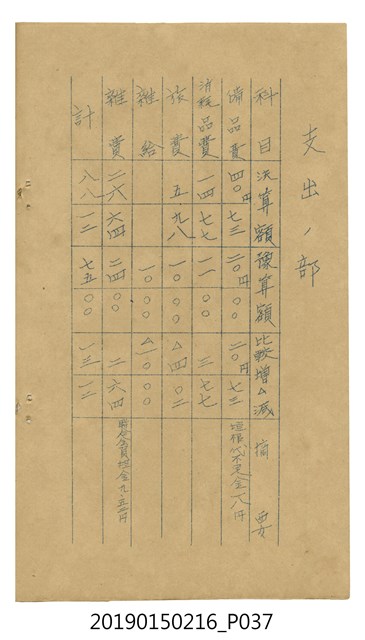 支出ノ部
科目 決算額 豫算額 比較増△減 摘要
備品費 四〇円七三 二〇円〇〇 二〇円七三
消耗品費 一四七七 一一〇〇 三七七
旅費 五九八 一〇〇〇 △四〇二
雑給 一〇〇〇 △一〇〇〇
雑費 二六六四 二四〇〇 二六四
計 八八一二 七五〇〇 一三一二
20190150216_P037